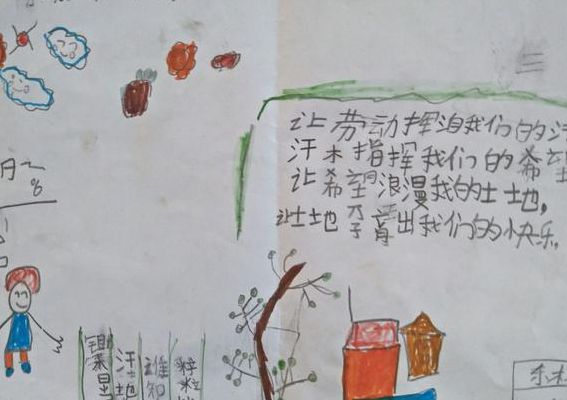 让劳动挥泊我们的
汗木指挥我们的希望
让希望浪漫我的土地,
让土地孕育出我们的快乐。
%
汗地
谁知
粒粒